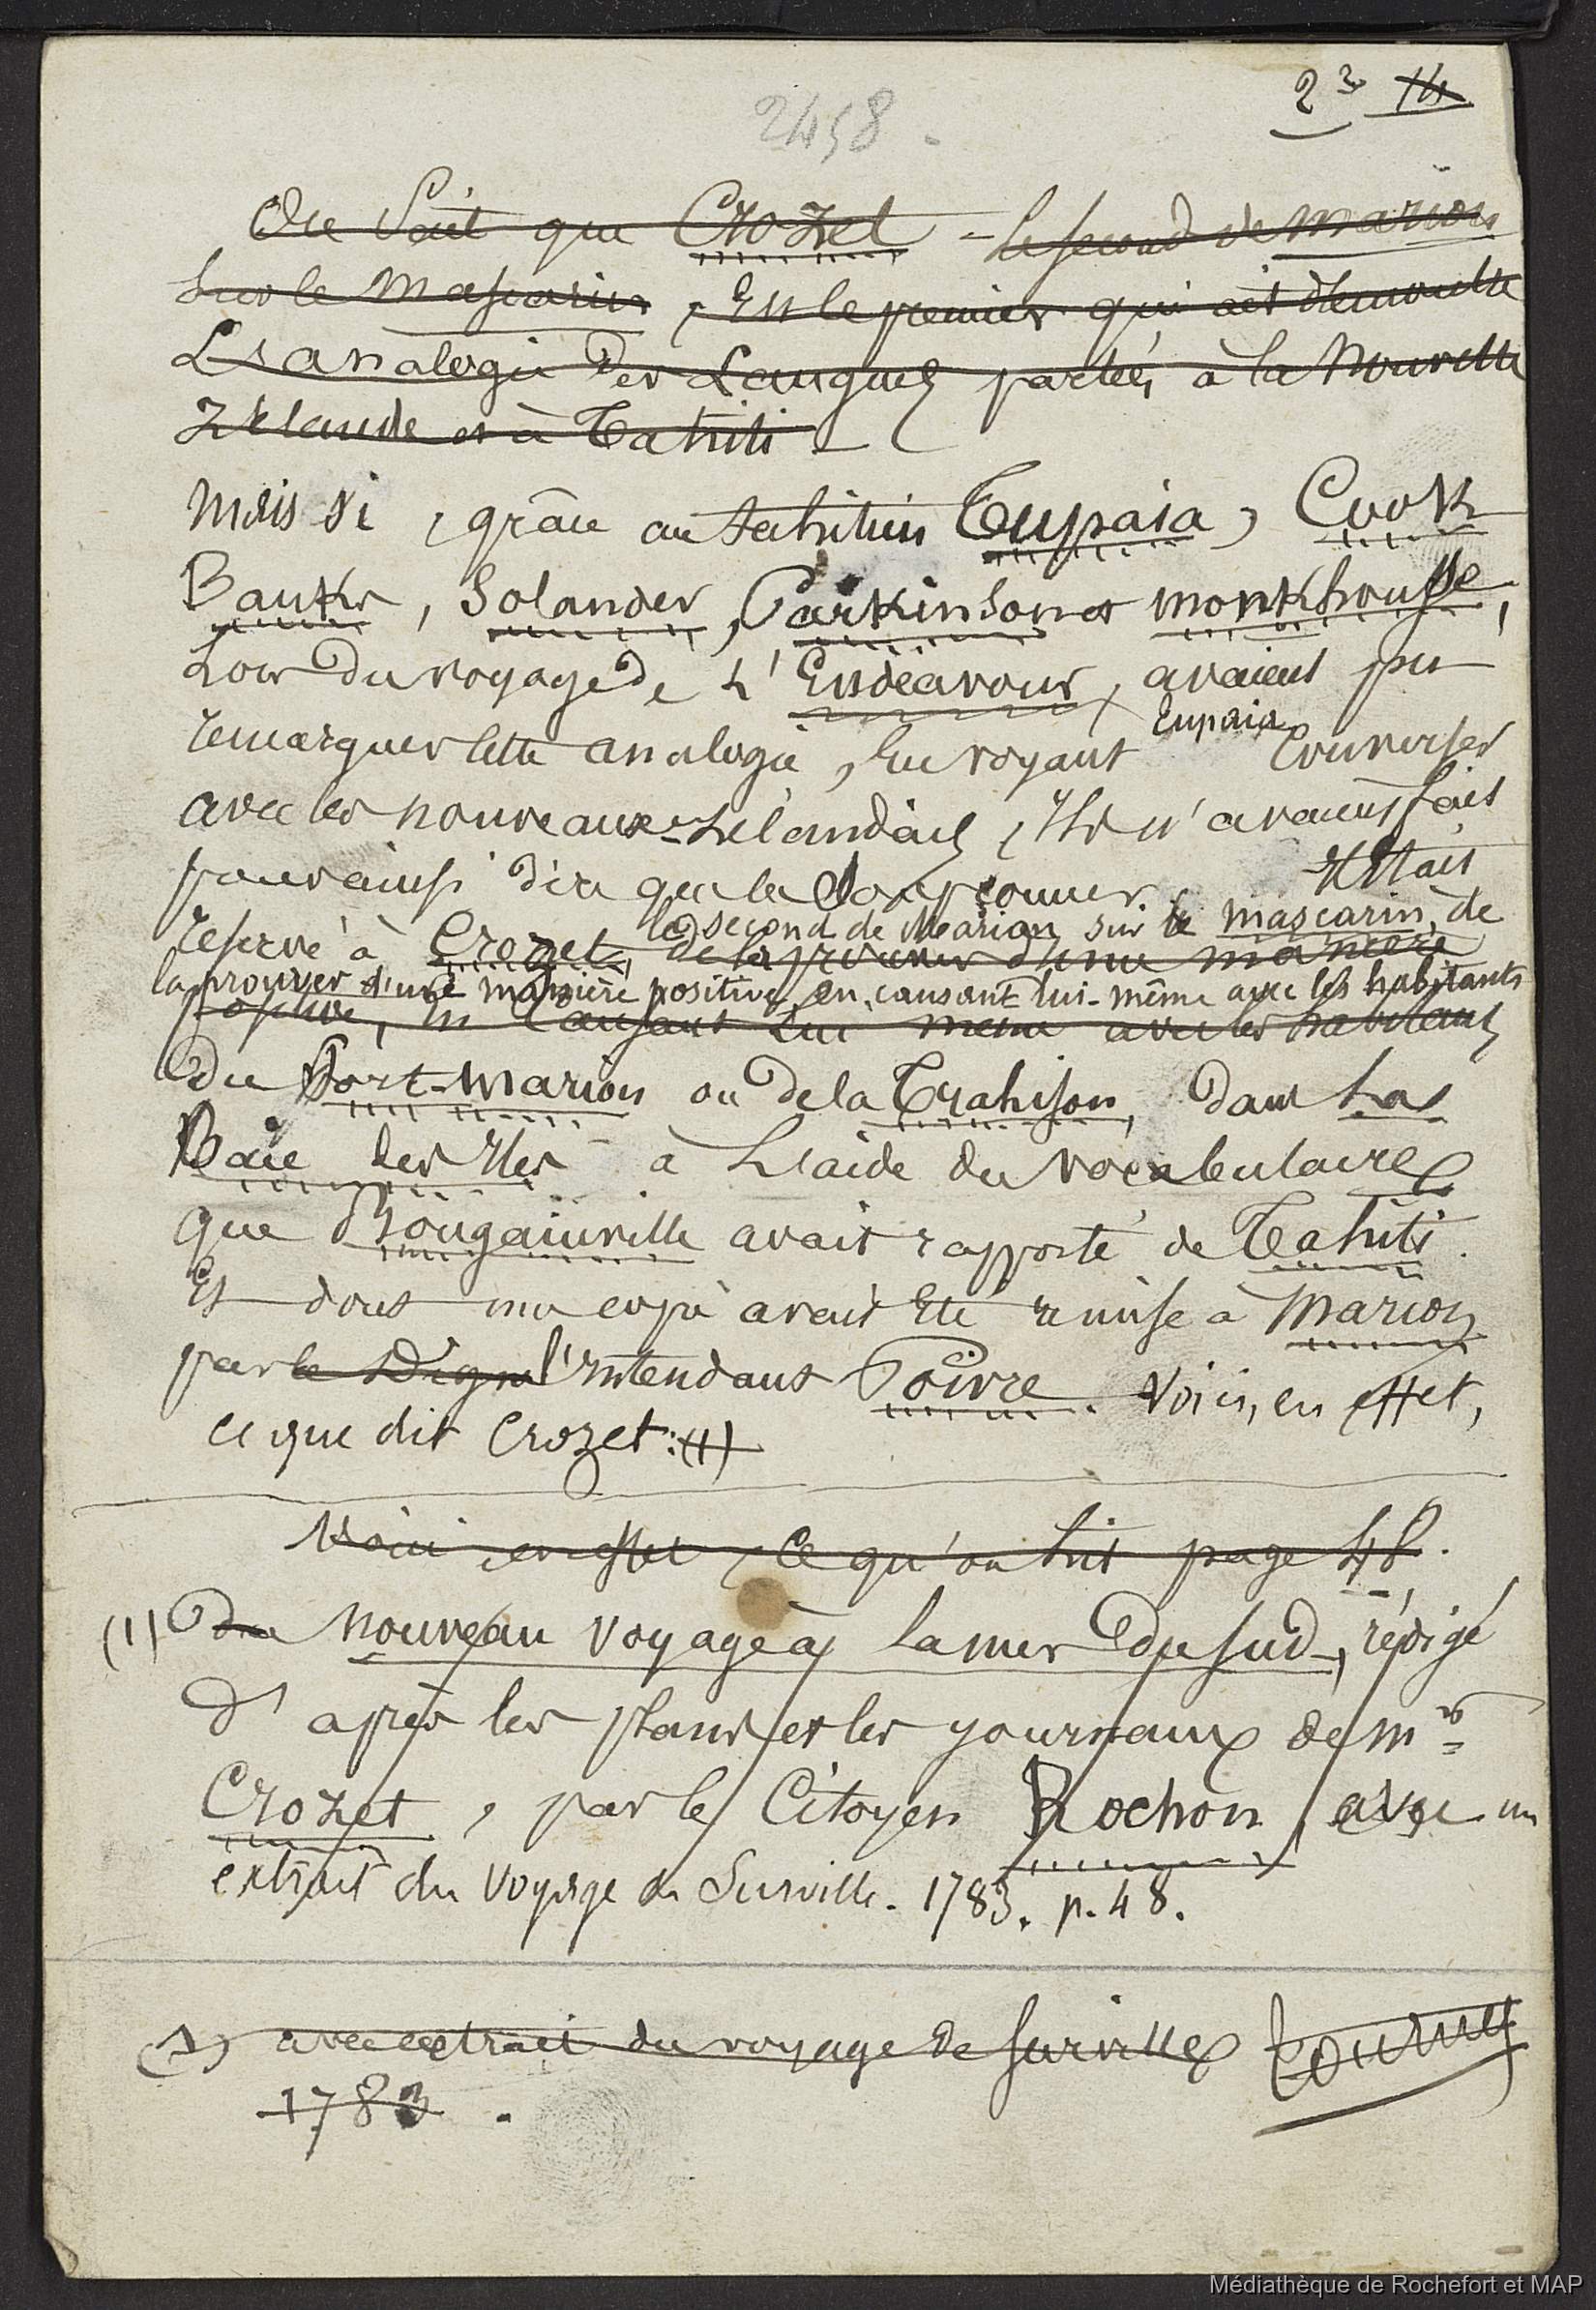 2458.
23 14
On sait que Crozet - le second de Marion
sur le Mascarin, est le premier qui ait démontré
L'analogie des Langues parlées à la Nouvelle
Zélande et à Tahiti -
Mais si, grâce au tahitien Tupaia, Cook
Banks, Solander, Parkinson et Monkhouse,
Lors du voyage de L'Endeavour, avaient pu
remarquer cette analogie, en voyant Tupaia converser
avec les nouveaux-zélandais, ils n'avaient fait
pour ainsi dire que la soupçonner. Il était
le second de Marion sur le Mascarin, de
réservé à Crozet, de la prouver d'une manière
la prouver d'une manière positive, en causant lui-même avec les habitants
positive, en causant lui même avec les habitants
du Port-Marion ou de la Trahison, dans La
Baie des Iles à L'aide du vocabulaire
que Bougainville avait rapporté de Tahiti.
Et dont une copie avait été remise à Marion
par le digne l'Intendant Poivre. Voici, en effet,
ce que dit Crozet: (1)
Voici, en effet, ce qu'on lit page 48.
(1) du Nouveau Voyage à la mer du Sud, rédigé
d'après les plans et les journaux de Mr
Crozet, par le Citoyen Rochon, avec un
extrait du Voyage de Surville. 1783. p. 48.
(1) avec extrait du voyage de Surville
1783.
Médiathèque de Rochefort et MAP